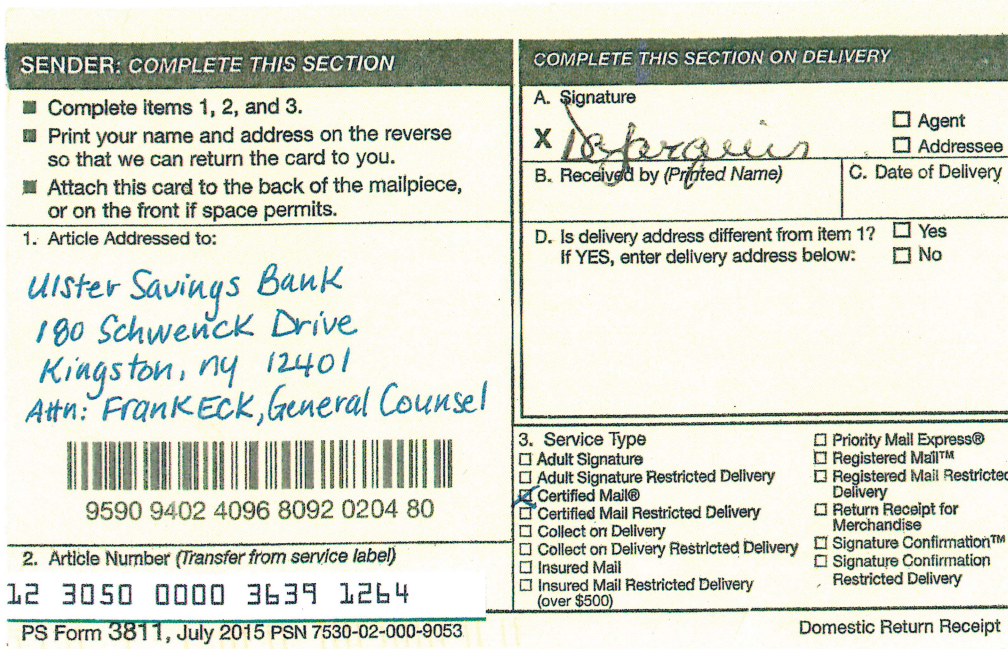 SENDER: COMPLETE THIS SECTION
■ Complete items 1, 2, and 3.
■ Print your name and address on the reverse
so that we can return the card to you.
■ Attach this card to the back of the mailpiece,
or on the front if space permits.
1. Article Addressed to:
Ulster Savings Bank
180 Schwenck Drive
Kingston, NY 12401
Attn: Frank Eck, General Counsel
9590 9402 4096 8092 0204 80
2. Article Number (Transfer from service label)
12 3050 0000 3639 1264
PS Form 3811, July 2015 PSN 7530-02-000-9053
COMPLETE THIS SECTION ON DELIVERY
A. Signature
X
☐ Agent
☐ Addressee
B. Received by (Printed Name)
C. Date of Delivery
D. Is delivery address different from item 1? ☐ Yes
If YES, enter delivery address below: ☐ No
3. Service Type
☐ Adult Signature
☐ Adult Signature Restricted Delivery
☒ Certified Mail®
☐ Certified Mail Restricted Delivery
☐ Collect on Delivery
☐ Collect on Delivery Restricted Delivery
☐ Insured Mail
☐ Insured Mail Restricted Delivery
(over $500)
☐ Priority Mail Express®
☐ Registered Mail™
☐ Registered Mail Restricted
Delivery
☐ Return Receipt for
Merchandise
☐ Signature Confirmation™
☐ Signature Confirmation
Restricted Delivery
Domestic Return Receipt